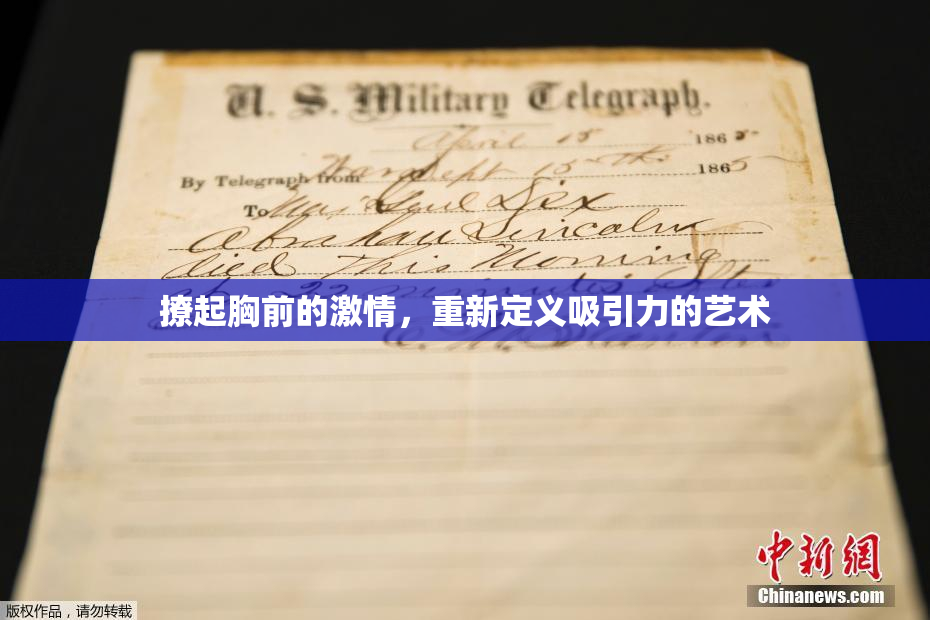 U. S. Military Telegraph.
April 15 1865
By Telegraph from War Dept 15th 1865
To Maj Genl Dix
Abraham Lincoln
died This Morning
at 22 minutes after
撩起胸前的激情，重新定义吸引力的艺术
E. M. Stanton
中新網
Chinanews.com
版权作品，请勿转载